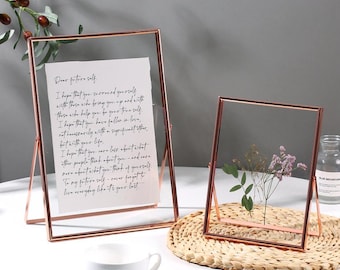 Dear future self,
I hope that you surround yourself
with those who bring you up and with
those who help you be your true self.
I hope that you have fallen in love,
not necessarily with a significant other,
but with your life.
I hope that you care less about what
other people think about you - and care
more about what you think of yourself.
To my future self - never forget:
love everyday like it's your last.